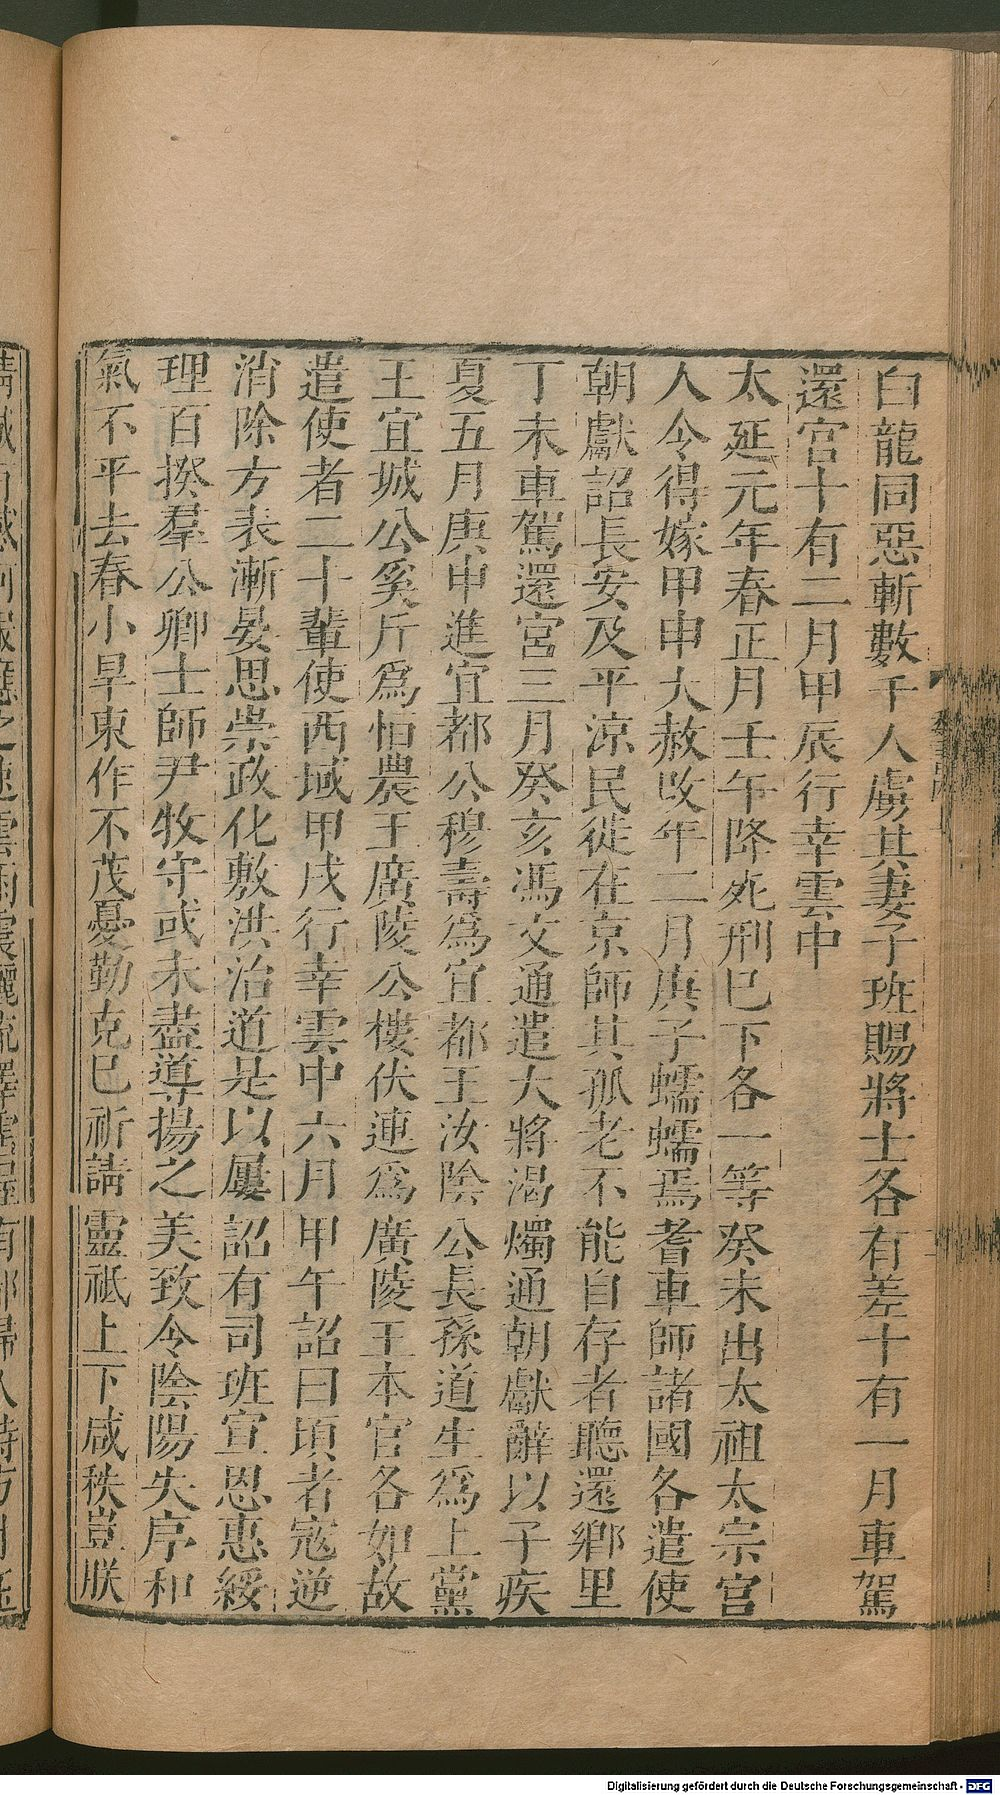 白龍同惡斬數千人虜其妻子班賜將士各有差十有一月車駕
還宮十有二月甲辰行幸雲中
太延元年春正月壬午降死刑巳下各一等癸未出太祖太宗宮
人令得嫁甲申大赦改年二月庚子蠕蠕焉耆車師諸國各遣使
朝獻詔長安及平涼民徙在京師其孤老不能自存者聽還鄉里
丁未車駕還宮三月癸亥馮文通遣大將渴燭通朝獻辭以子疾
夏五月庚申進宜都公穆壽爲宜都王汝陰公長孫道生爲上黨
王宜城公奚斤爲恒農王廣陵公樓伏連爲廣陵王本官各如故
遣使者二十輩使西域甲戌行幸雲中六月甲午詔曰頃者寇逆
消除方表漸晏思崇政化敷洪治道是以屢詔有司班宣恩惠綏
理百揆羣公卿士師尹牧守或未盡導揚之美致令陰陽失序和
氣不平去春小旱東作不茂憂勤克巳祈請靈祗上下咸秩豈朕
Digitalisierung gefördert durch die Deutsche Forschungsgemeinschaft - DFG